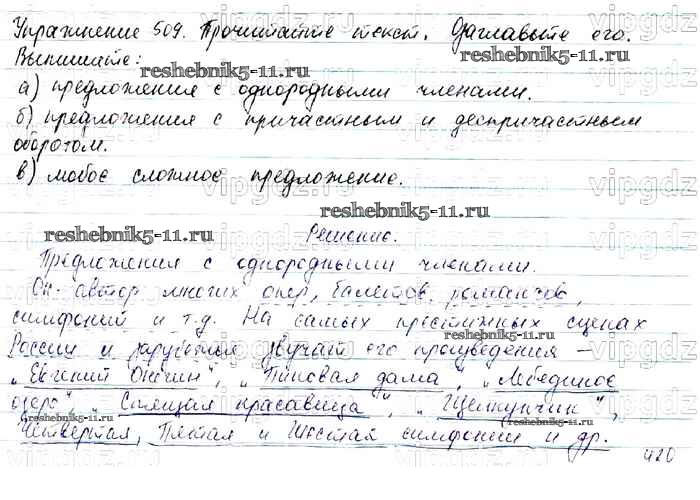 Упражнение 509. Прочитайте текст. Озаглавьте его.
Выпишите:
а) предложения с однородными членами.
б) предложения с причастным и деепричастным
оборотом.
в) любое сложное предложение.
Решение.
Предложения с однородными членами.
Он - автор многих опер, балетов, романсов,
симфоний и т.д. На самых престижных сценах
России и зарубежья звучат его произведения –
„Евгений Онегин", „Пиковая дама", „Лебединое
озеро", „Спящая красавица", „Щелкунчик",
Четвертая, Пятая и Шестая симфонии и др.
420
reshebnik5-11.ru
reshebnik5-11.ru
reshebnik5-11.ru
reshebnik5-11.ru
reshebnik5-11.ru
reshebnik5-11.ru
reshebnik5-11.ru
vipgdz